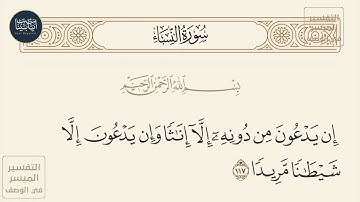 سُورَةُ النِّسَاءِ
التفسير
الميسر
في الوصف
بِسْمِ اللَّهِ الرَّحْمَٰنِ الرَّحِيمِ
إِن يَدْعُونَ مِن دُونِهِۦٓ إِلَّآ إِنَٰثًا وَإِن يَدْعُونَ إِلَّا
شَيْطَٰنًا مَّرِيدًا ١١٧
التفسير
الميسر
في الوصف